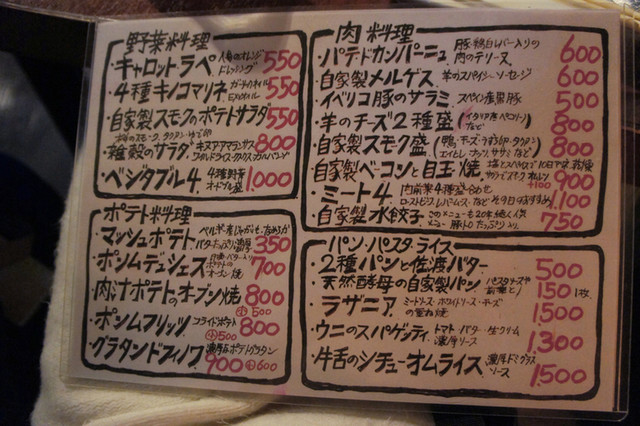 野菜料理
・キャロットラペ 人参のオレンジドレッシング 550
・4種キノコマリネ 550
・自家製スモークのポテトサラダ 550
・雑穀のサラダ 800
・ベジタブル4. 4種野菜オードブル盛 1,000
ポテト料理
・マッシュポテト 350
・ポンムデュシェス 700
・肉汁ポテトのオーブン焼 800
小500
・ポンムフリッツ フライドポテト 800
小500
・グラタンドフィノワ 濃厚なポテトグラタン 900 小600
肉料理
・パテ・ドカンパーニュ 豚・鶏白レバー入りの肉のテリーヌ 600
・自家製メルゲス 羊のスパイシーソーセージ 600
・イベリコ豚のサラミ スペイン産黒豚 500
・羊のチーズ2種盛 (イタリア産ペコリーノなど) 800
・自家製スモーク盛 800
・自家製ベーコンと目玉焼 +100 900
・ミート4. 肉前菜4種盛合わせ 1,100
・自家製水餃子 このメニューも20年続く人気メニュー 750
パン・パスタ・ライス
・2種パンと佐渡バター 500
・天然酵母の自家製パン 150 1枚
・ラザニア ミートソース・ホワイトソース・チーズの重ね焼 1,500
・ウニのスパゲッティ トマト バター 生クリーム 濃厚ソース 1,300
・牛舌のシチューオムライス 濃厚ドミグラスソース 1,500